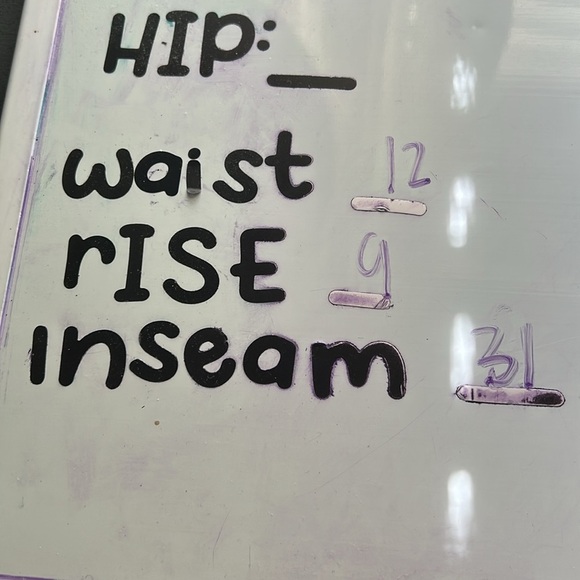 HIP:__
waist 12
rISE 9
Inseam 31